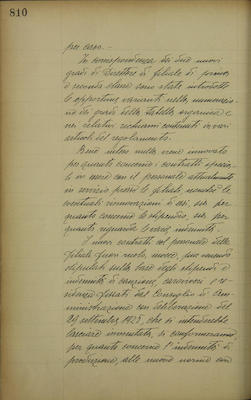 810
per cento. –
In corrispondenza dei due nuovi
gradi di Direttore di filiale di prima
e seconda classe sono state introdotte
le opportune varianti nella numerazio-
ne dei gradi della tabella organica e
nei relativi richiami contenuti in vari
articoli del regolamento.
Bene inteso nulla viene innovato
per quanto concerne i contratti specia-
li in corso con il personale attualmente
in servizio presso le filiali nonchè le
eventuali rinnovazioni di essi, sia per
quanto concerne lo stipendio, sia per
quanto riguarda le varie indennità.
I nuovi contratti col personale delle
filiali fuori ruolo, invece, pur essendo
stipulati sulla base degli stipendi e
indennità di cauzione, caroviveri e re-
sidenza fissati dal Consiglio di Am-
ministrazione con deliberazione del
29 settembre 1925, che si intenderebbe
lasciare immutata, si conformeranno
per quanto concerne l'indennità di
produzione, alle nuove norme con